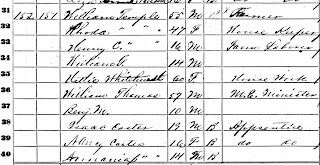 31 152 151 William Temple 55 M Farmer
32 Rhoda " " 47 F House Keeper
33 Henry C. " " 16 M Farm Laborer
34 14 M
35 60 F House Work
36 William Thomas 57 M M.E. Minister
37 Benj. M. 10 M
38 Isaac Carter 19 M B Apprentice
39 Carter 16 F B do do
40 14 M B